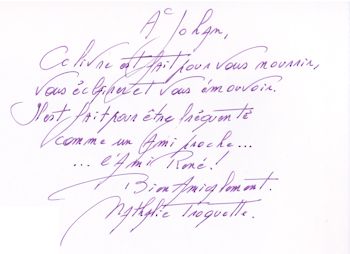 A Johan,
Ce livre est fait pour vous nourrir,
vous éclairer et vous émouvoir.
Il est fait pour être fréquenté
comme un Ami proche...
... l'Ami René !
Bien Amicalement.
Nathalie Troquette.